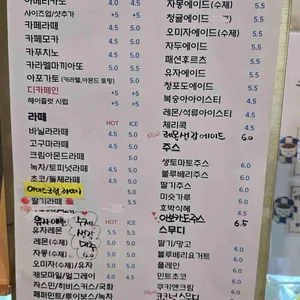 아메리카노 4.0 4.5
사이즈업/샷추가 +5 +5
카페라떼 4.5 5.0
카페모카 5.0 5.0
카푸치노 5.0 5.0
카라멜마끼아또 5.0 5.0
아포가토 (카라멜,아몬드 토핑) 5.5
디카페인 +5 +5
헤이즐럿 시럽 +5 +5
라떼 HOT ICE
바닐라라떼 5.0 5.0
고구마라떼 5.0 5.0
크림아몬드라떼 5.0 5.0
녹차/토피넛라떼 5.0 5.0
초코/돌체라떼 5.0 5.0
딸기라떼
HOT ICE
수제
유자레몬 생강
레몬(수제) 대추
자몽(수제) 6.0
오미자(수제)/유자 5.0
캐모마일/얼그레이 4.0 4.5
자스민/히비스커스/국화
페퍼민트/루이보스/녹차
자몽에이드(수제) 5.5
청귤에이드(수제) 5.5
오미자에이드(수제) 5.5
자두에이드 5.5
패션후르츠 5.5
유자에이드 5.5
청포도에이드 5.5
복숭아아이스티 4.5
레몬/석류아이스티 4.5
체리콕 4.5
레몬생강에이드 6.0
주스
생토마토주스 6.0
블루베리주스 6.0
딸기주스 6.0
미숫가루 5.0
호박식혜 4.5
아보카도주스 6.5
스무디
딸기/망고 6.0
블루베리요거트 6.0
플레인 6.0
민트초코 6.0
쿠키앤크림 6.0
코코넛스무디 6.0